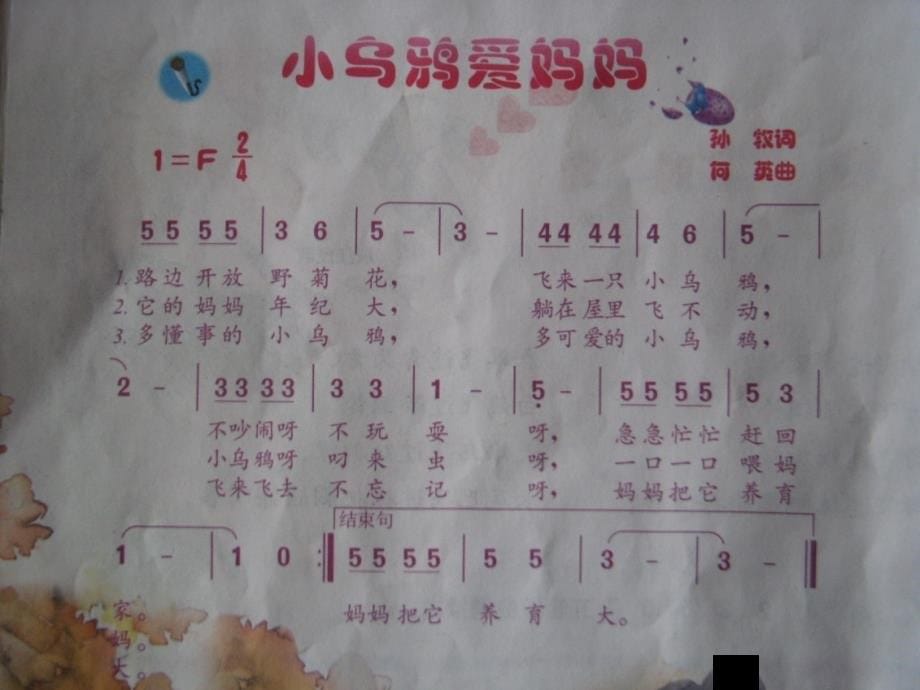 小乌鸦爱妈妈
孙 牧词
1=F 2/4
何 英曲
5 5 5 5 | 3 6 | 5 - | 3 - | 44 44 | 4 6 | 5 - |
1. 路边开放 野菊花， 飞来一只 小乌鸦，
2. 它的妈妈 年纪大， 躺在屋里 飞不动，
3. 多懂事的 小乌鸦， 多可爱的 小乌鸦，
2 - | 33 33 | 3 3 | 1 - | 5̣ - | 55 55 | 5 3 |
不吵闹呀 不玩耍呀， 急急忙忙 赶回
小乌鸦呀 叼来虫呀， 一口一口 喂妈
飞来飞去 不忘记呀， 妈妈把它 养育
结束句
1 - | 1 0 :‖ 5 5 5 5 | 5 5 | 3 - | 3 - ‖
家。 妈妈把它 养育大。
妈。
大。